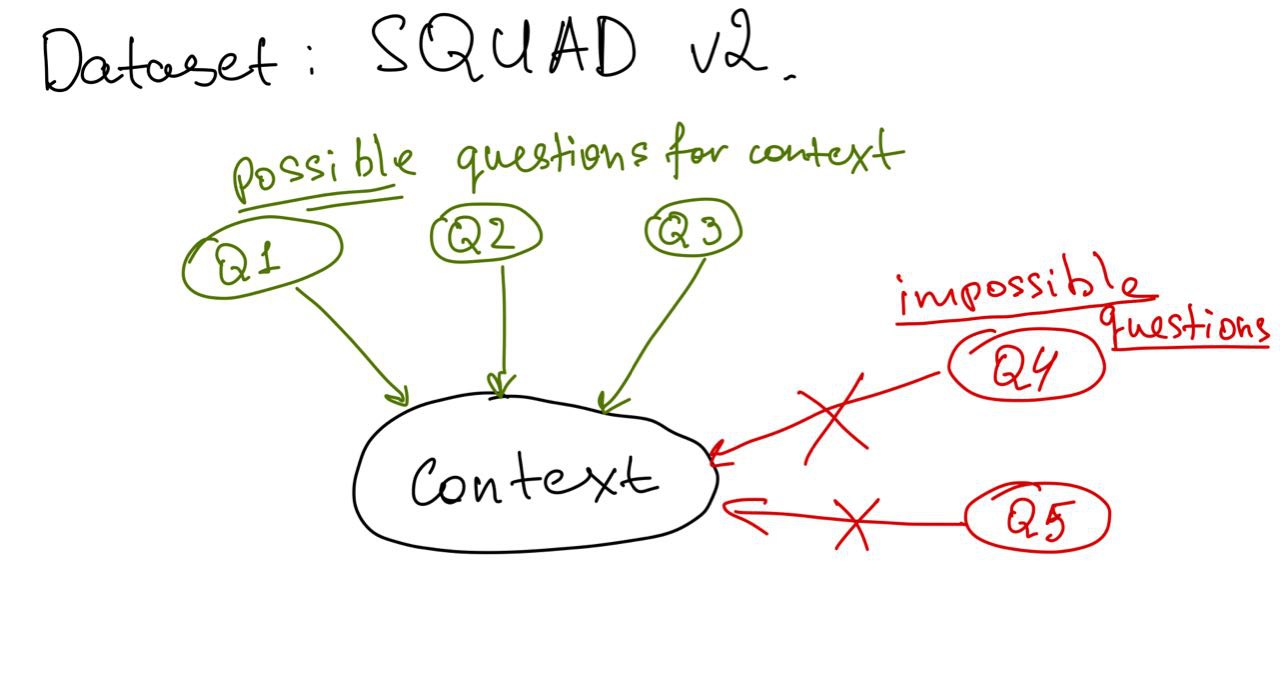 Dataset: SQUAD v2.
possible questions for context
Q1 Q2 Q3
impossible
questions
Q4
Context
Q5